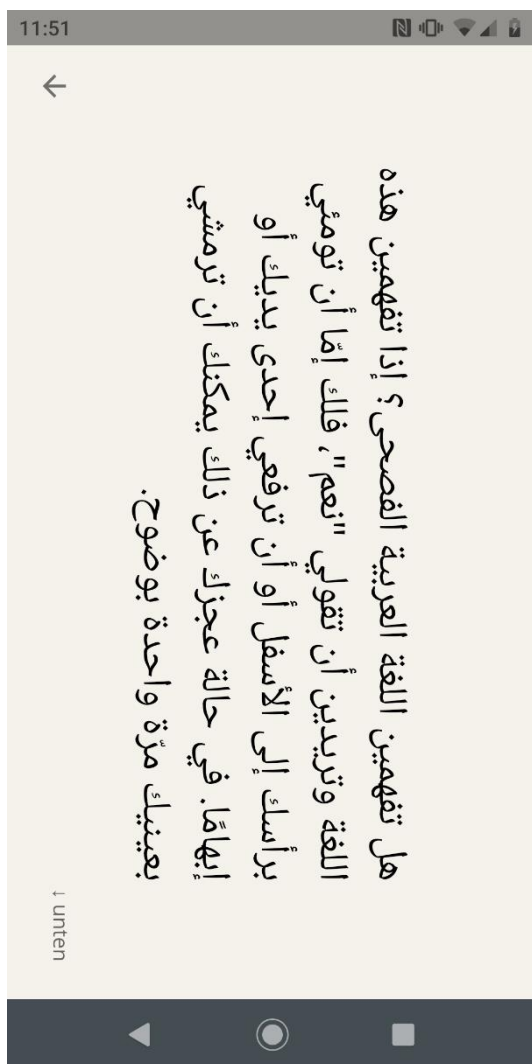 11:51
هل تفهمين اللغة العربية الفصحى؟ إذا تفهمين هذه
اللغة وتريدين أن تقولي "نعم"، فلك إمّا أن تومئي
برأسك إلى الأسفل أو أن ترفعي إحدى يديك أو
إبهامًا. في حالة عجزك عن ذلك يمكنك أن ترمشي
بعينيك مرّة واحدة بوضوح.
↓ unten